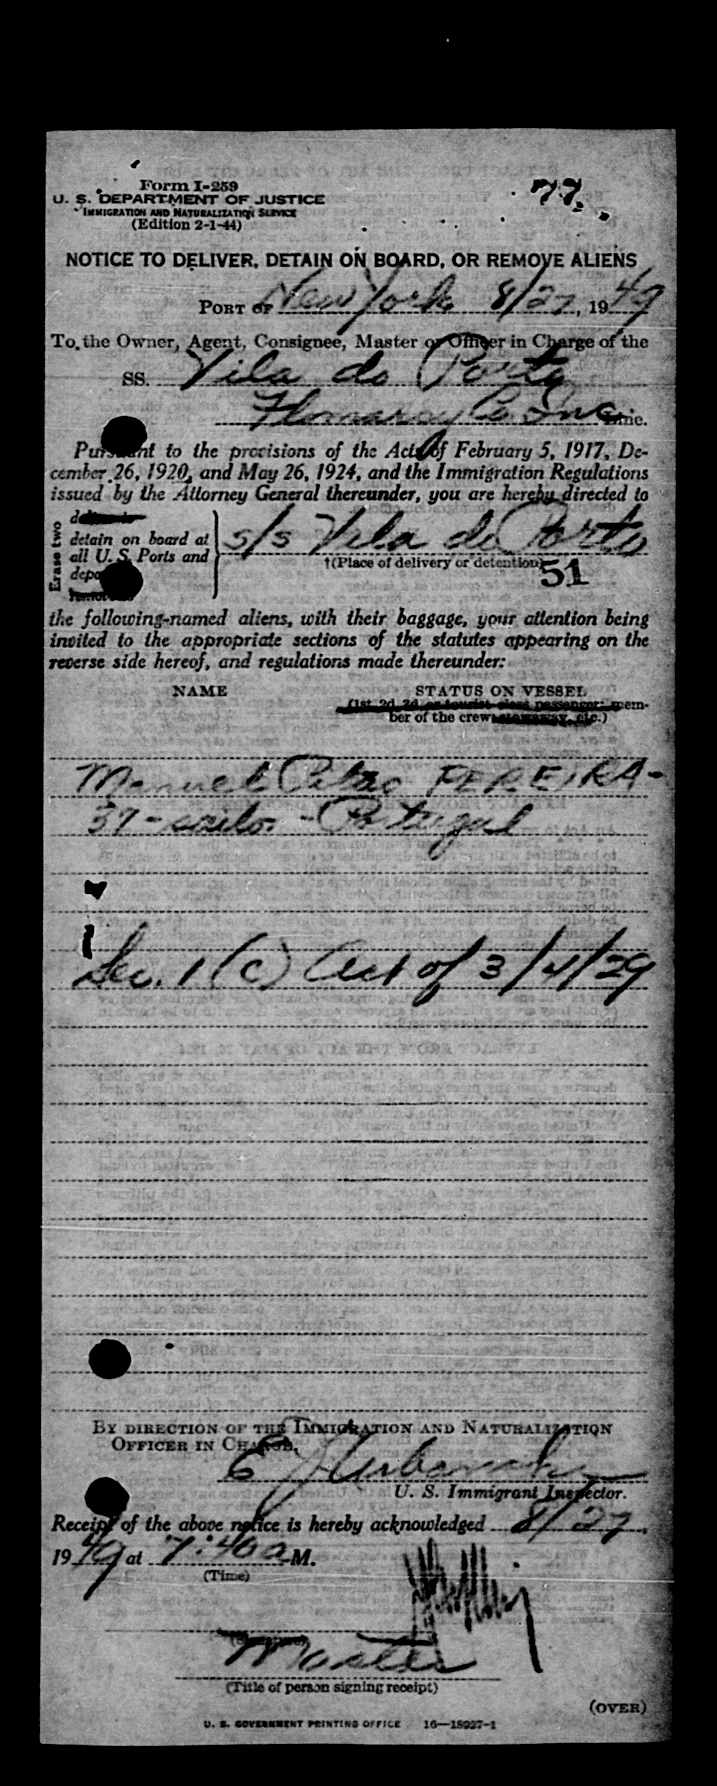 Form I-259
77.
U. S. DEPARTMENT OF JUSTICE
IMMIGRATION AND NATURALIZATION SERVICE
(Edition 2-1-44)
NOTICE TO DELIVER, DETAIN ON BOARD, OR REMOVE ALIENS
PORT OF New York 8/27, 1949
To the Owner, Agent, Consignee, Master or Officer in Charge of the
SS. Vila do Porto
Co Inc. Line.
Pursuant to the provisions of the Acts of February 5, 1917, De-
cember 26, 1920, and May 26, 1924, and the Immigration Regulations
issued by the Attorney General thereunder, you are hereby directed to
Erase two
detain on board at
all U. S. Ports and
s/s Vila do Porto
†(Place of delivery or detention)
51
the following-named aliens, with their baggage, your attention being
invited to the appropriate sections of the statutes appearing on the
reverse side hereof, and regulations made thereunder:
NAME STATUS ON VESSEL
(1st, 2d, 3d, or tourist class passenger; mem-
ber of the crew, stowaway, etc.)
Manuel PEREIRA-
37-sailor - Portugal
Sec. 1 (c) Act of 3/4/29
BY DIRECTION OF THE IMMIGRATION AND NATURALIZATION
OFFICER IN CHARGE,
E J Urbanek
U. S. Immigrant Inspector.
Receipt of the above notice is hereby acknowledged 8/27,
1949 at 7:40 a M.
(Time)
Master
(Title of person signing receipt)
(OVER)
U. S. GOVERNMENT PRINTING OFFICE 16-18927-1